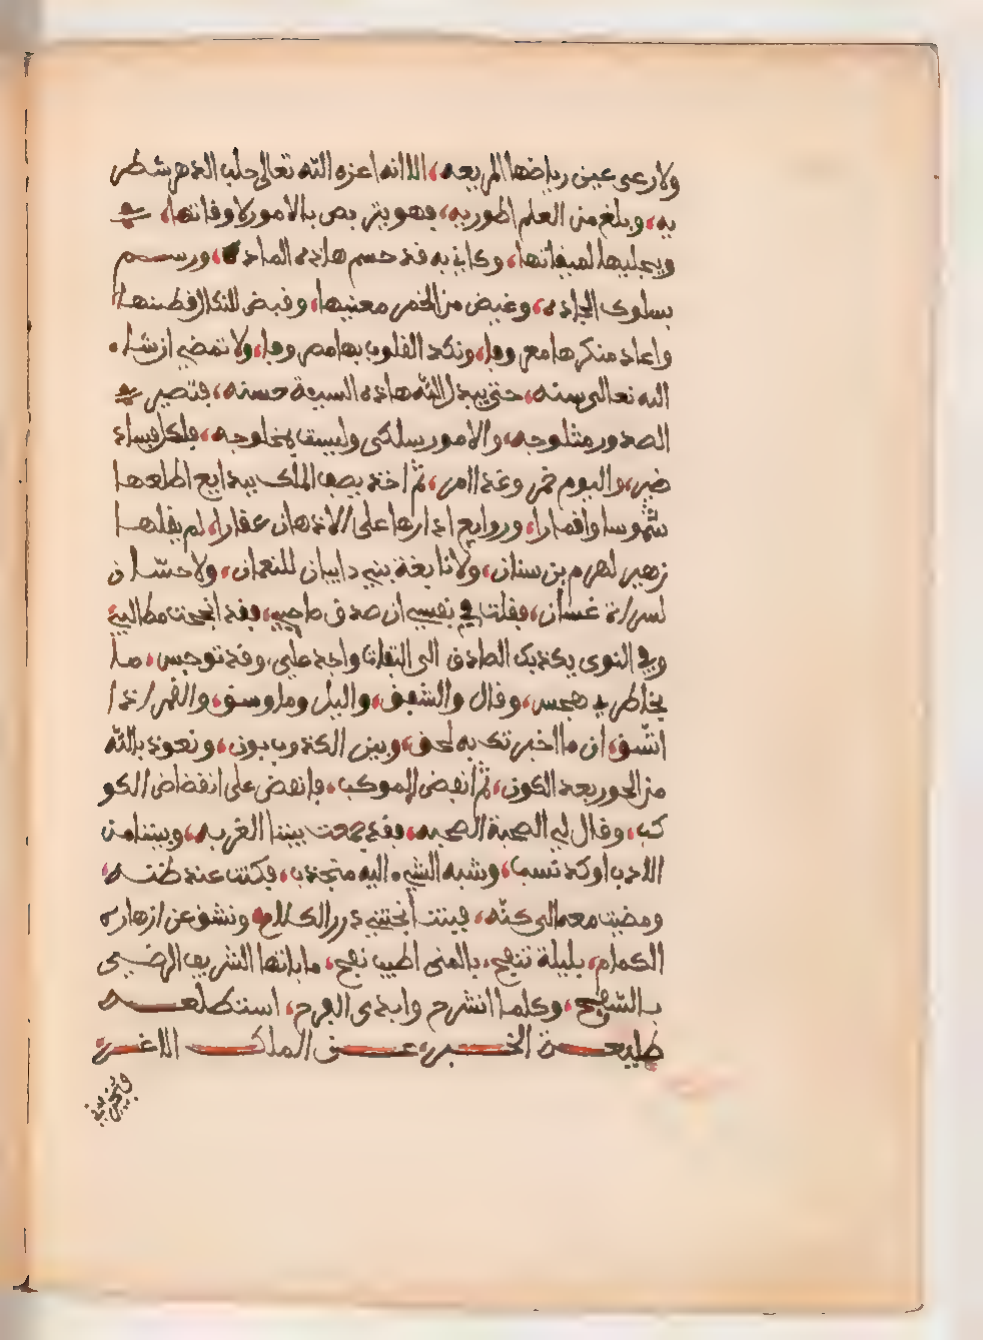 ولا رعى عين رياضها المريعه، الا انه اعزه الله تعالى حلب الدهر شطر
يه، وبلغ من العلم اطوريه، فهو يتربص بالامور لاوقاتها،
ويجليها لميقاتها، وكاني به قد حسم هاذه الماده، ورسم
بسلوك الجاده، وغيض من الخمر معينها، وقبض للنكال قطينها
واعاد منكرها معروفا، ونكد القلوب بها مصروفا، ولا تمضي ان شاء
الله تعالى سنه، حتى يبدل الله هاذه السيئة حسنه، فتصير
الصدور مثلوجه، والامور سلكى وليست بمخلوجه، فلكل فساد
ضير، واليوم خمر وغدا امر، ثم اخذ يصف الملك ببدايع اطلعها
شموسا واقمارا، وروايع ادارها على الاذهان عقارا، لم يقلها
زهير لهرم بن سنان، ولا نابغة بني ذابيان للنعمان، ولا حسان
لسراة غسان، فقلت في نفسي ان صدق صاحبي، فقد انجحت مطالبي
وفي النوى يكذبك الصادق الى التفاتا واجد علي، وقد توجس، ما
بخاطري هجس، وقال والشفق، واليل وما وسق، والقمر اذا
اتسق، ان ما اخبرتك به لحق، وبين الكذوب بون، ونعوذ بالله
من الحور بعد الكون، ثم انفض الموكب، فانقض علي انقضاض الكو
كب، وقال لي الصحبة الصحبه، فقد جمعت بيننا الغربه، وبيننا من
الادب اوكد نسب، وشبه الشيء اليه منجذب، فكنت عند ظنه،
ومضيت معه الى كنه، فبتت اجتني درر الكلام ونشق عن ازهاره
الكمام، بليلة تنفح، بالمنى اطيب نفح، ما باتها الشريف الرضي
بالسفح، وكلما انشرح وابدى الفرح، استطلعه
طليعة الخبر، عن الملك الاغر،